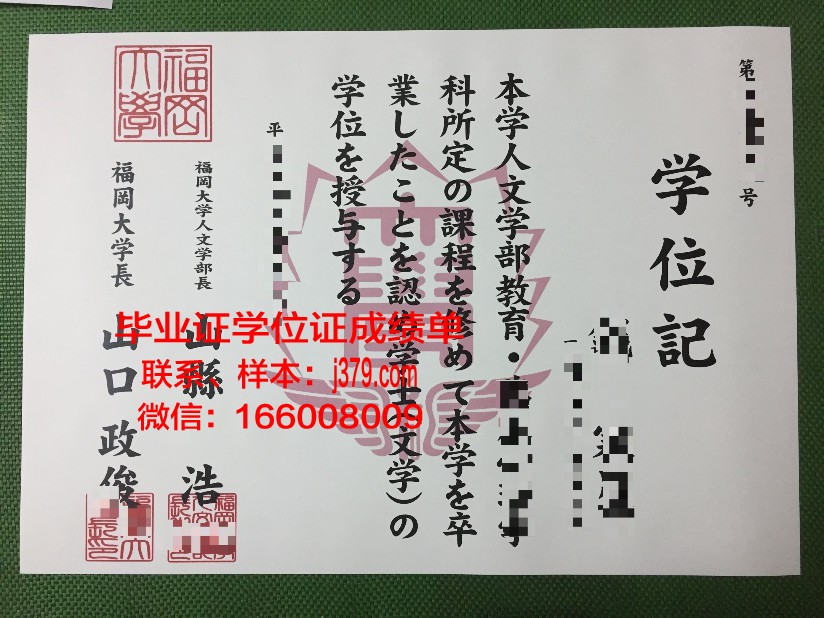 第
号
学位記
本学人文学部教育・
科所定の課程を修めて本学を卒
業したことを認め学士(文学)の
学位を授与する
平
福岡大学人文学部長 山縣 浩
福岡大学長 山口 政俊
福岡
大學
毕业证学位证成绩单
联系、样本:j379.com
微信:166008009